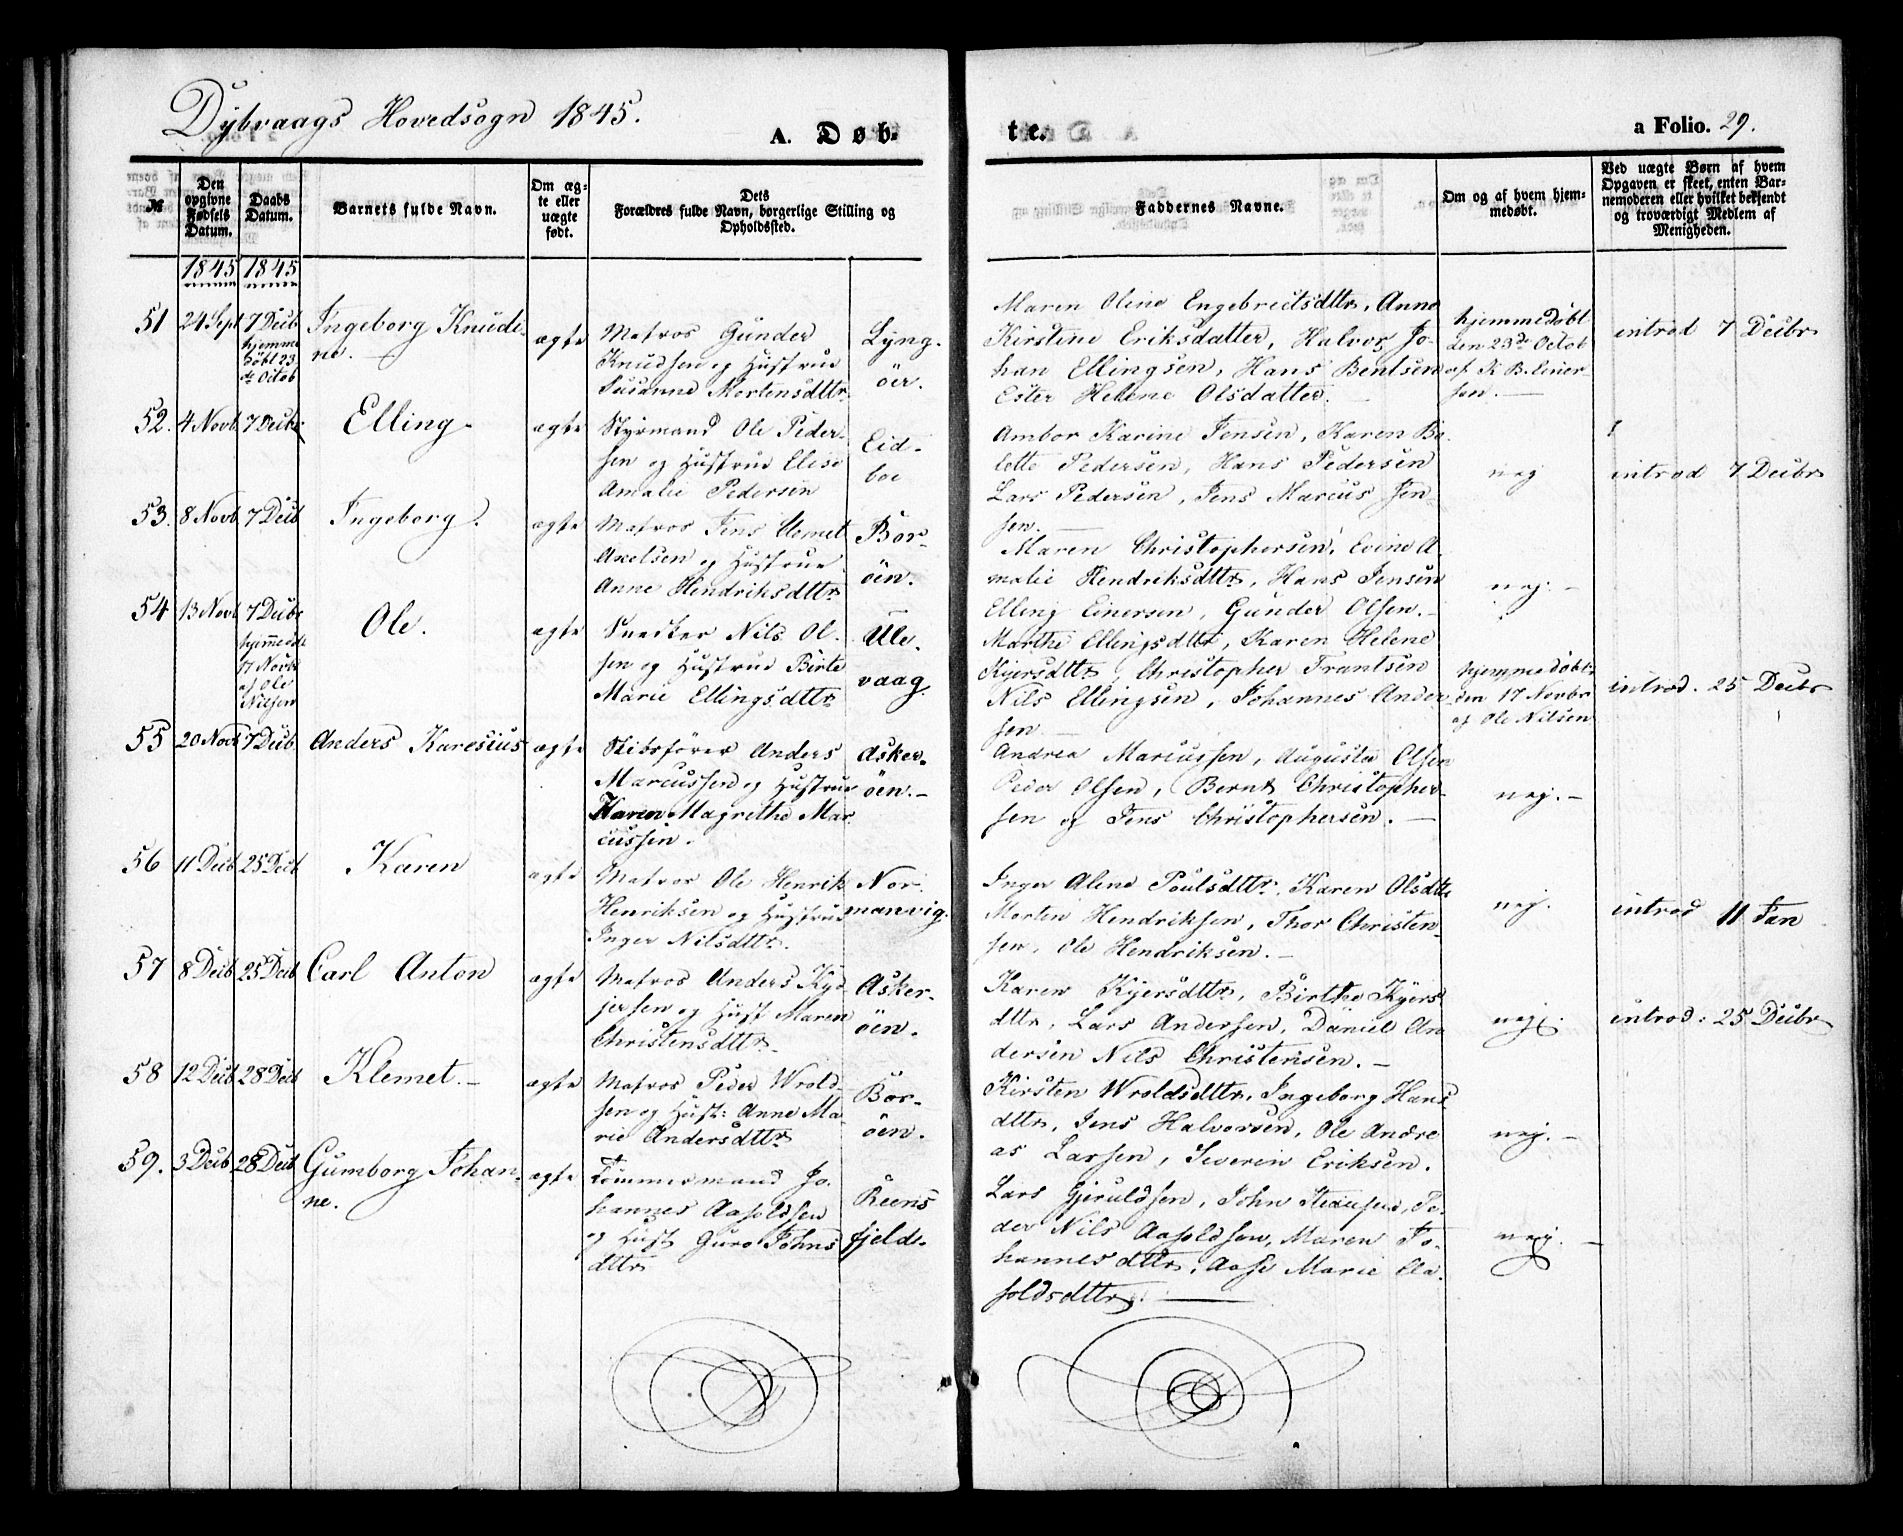 Dybvaags Hovedsogn 1845.
A. Døb-
te.
a Folio. 29.
№
Den opgivne Fødsels Datum.
Daabs Datum.
Barnets fulde Navn.
Om ægte eller uægte født.
Dets Forældres fulde Navn, borgerlige Stilling og Opholdssted.
Faddernes Navne.
Om og af hvem hjemmedøbt.
Ved uægte Børn af hvem Opgaven er skeet, enten Barnemoderen eller hvilket bekjendt og troværdigt Medlem af Menigheden.
1845 1845
51 24 Sept 7 Decb
hjemme
døbt 23
de Octob
Ingeborg Knudi-
ne.
ægte
Matros Gunder
Knudsen og Hustrue
Susanne Mortensdttr
Lyng-
öer.
Maren Oline Engebretsdttr, Anne
Kirstine Eriksdatter, Halvor Jo-
han Ellingsen, Hans Bentsen
Ester Helene Olsdatter.
hjemmedøbt
den 23de Octob
af K. B. Einer-
sen.
introd 7 Decbr
52. 4 Novb 7 Decbr
Elling.
ægte
Styrmand Ole Peder-
sen og Hustrue Elise
Amalie Pedersen
Eid-
boe
Ambor Karine Jensen, Karen Bo-
lette Pedersen, Hans Pedersen
Lars Pedersen, Jens Marcus Jen-
sen.
nej
introd 7 Decbr
53. 8 Novb 7 Decb
Ingeborg.
ægte
Matros Jens Clemet
Axelsen og Hustrue
Anne Hendriksdttr
Bor-
öen.
Maren Christophersen, Evine A-
malie Hendriksdttr, Hans Jensen
Elling Einersen, Gunder Olsen.
nej.
54 13 Novb 7 Decbr
hjemmedøbt
17 Novb
af Ole
Nilsen
Ole.
ægte
Snedker Nils Ol-
sen og Hustrue Birte
Marie Ellingsdttr
Ule-
vaag.
Marthe Ellingsdttr, Karen Helene
Kjersdttr, Christopher Frantsen
Nils Ellingsen, Johannes Ander-
sen
hjemmedøbt
den 17 Novbr
af Ole Nilsen
introd. 25 Decbr
55 20 Novb 7 Decb.
Anders Karesius
ægte
Skibsfører Anders
Marcussen og Hustrue
Karen Magrethe Mar
cussen.
Asker-
öen.
Andrea Marcussen, Augusta Olsen
Peder Olsen, Bernt Christopher-
sen og Jens Christophersen.
nej.
56 11 Decb 25 Decb
Karen
ægte
Matros Ole Henrik
Henriksen og Hustrue
Inger Nilsdttr.
Nor-
manvig.
Inger Alene Poulsdttr, Karen Olsdttr
Morten Hendriksen, Thor Christen-
sen, Ole Hendriksen.
nej.
introd 11 Jan
57 8 Decb 25 Decb
Carl Anton
ægte
Matros Anders Kyd-
jersen og Hust Maren
Christensdttr
Asker-
öen.
Karen Kjersdttr, Birthe Kjers
dttr, Lars Andersen, Daniel An
dersen Nils Christensen.
nej.
introd: 25 Decbr
58 12 Decb 28 Decb
Klemet.
ægte
Matros Peder Wrold-
sen og Hust: Anne Ma-
rie Andersdttr
Bor-
öen.
Kirsten Wroldsdttr, Ingeborg Hans
dttr, Jens Halvorsen, Ole Andre
as Larsen, Severin Eriksen.
nej.
59. 3 Decb 28 Decb
Gumborg Johan-
ne.
ægte
Tömmermand Jo-
hannes Aasoldsen
og Hust Guro Johns
dttr
Reens
fjeld.
Lars Gjeruldsen, John, Pe-
der Nils Aasoldsen, Maren Jo-
hannesdttr, Aase Marie Aa-
soldsdttr.
nej.